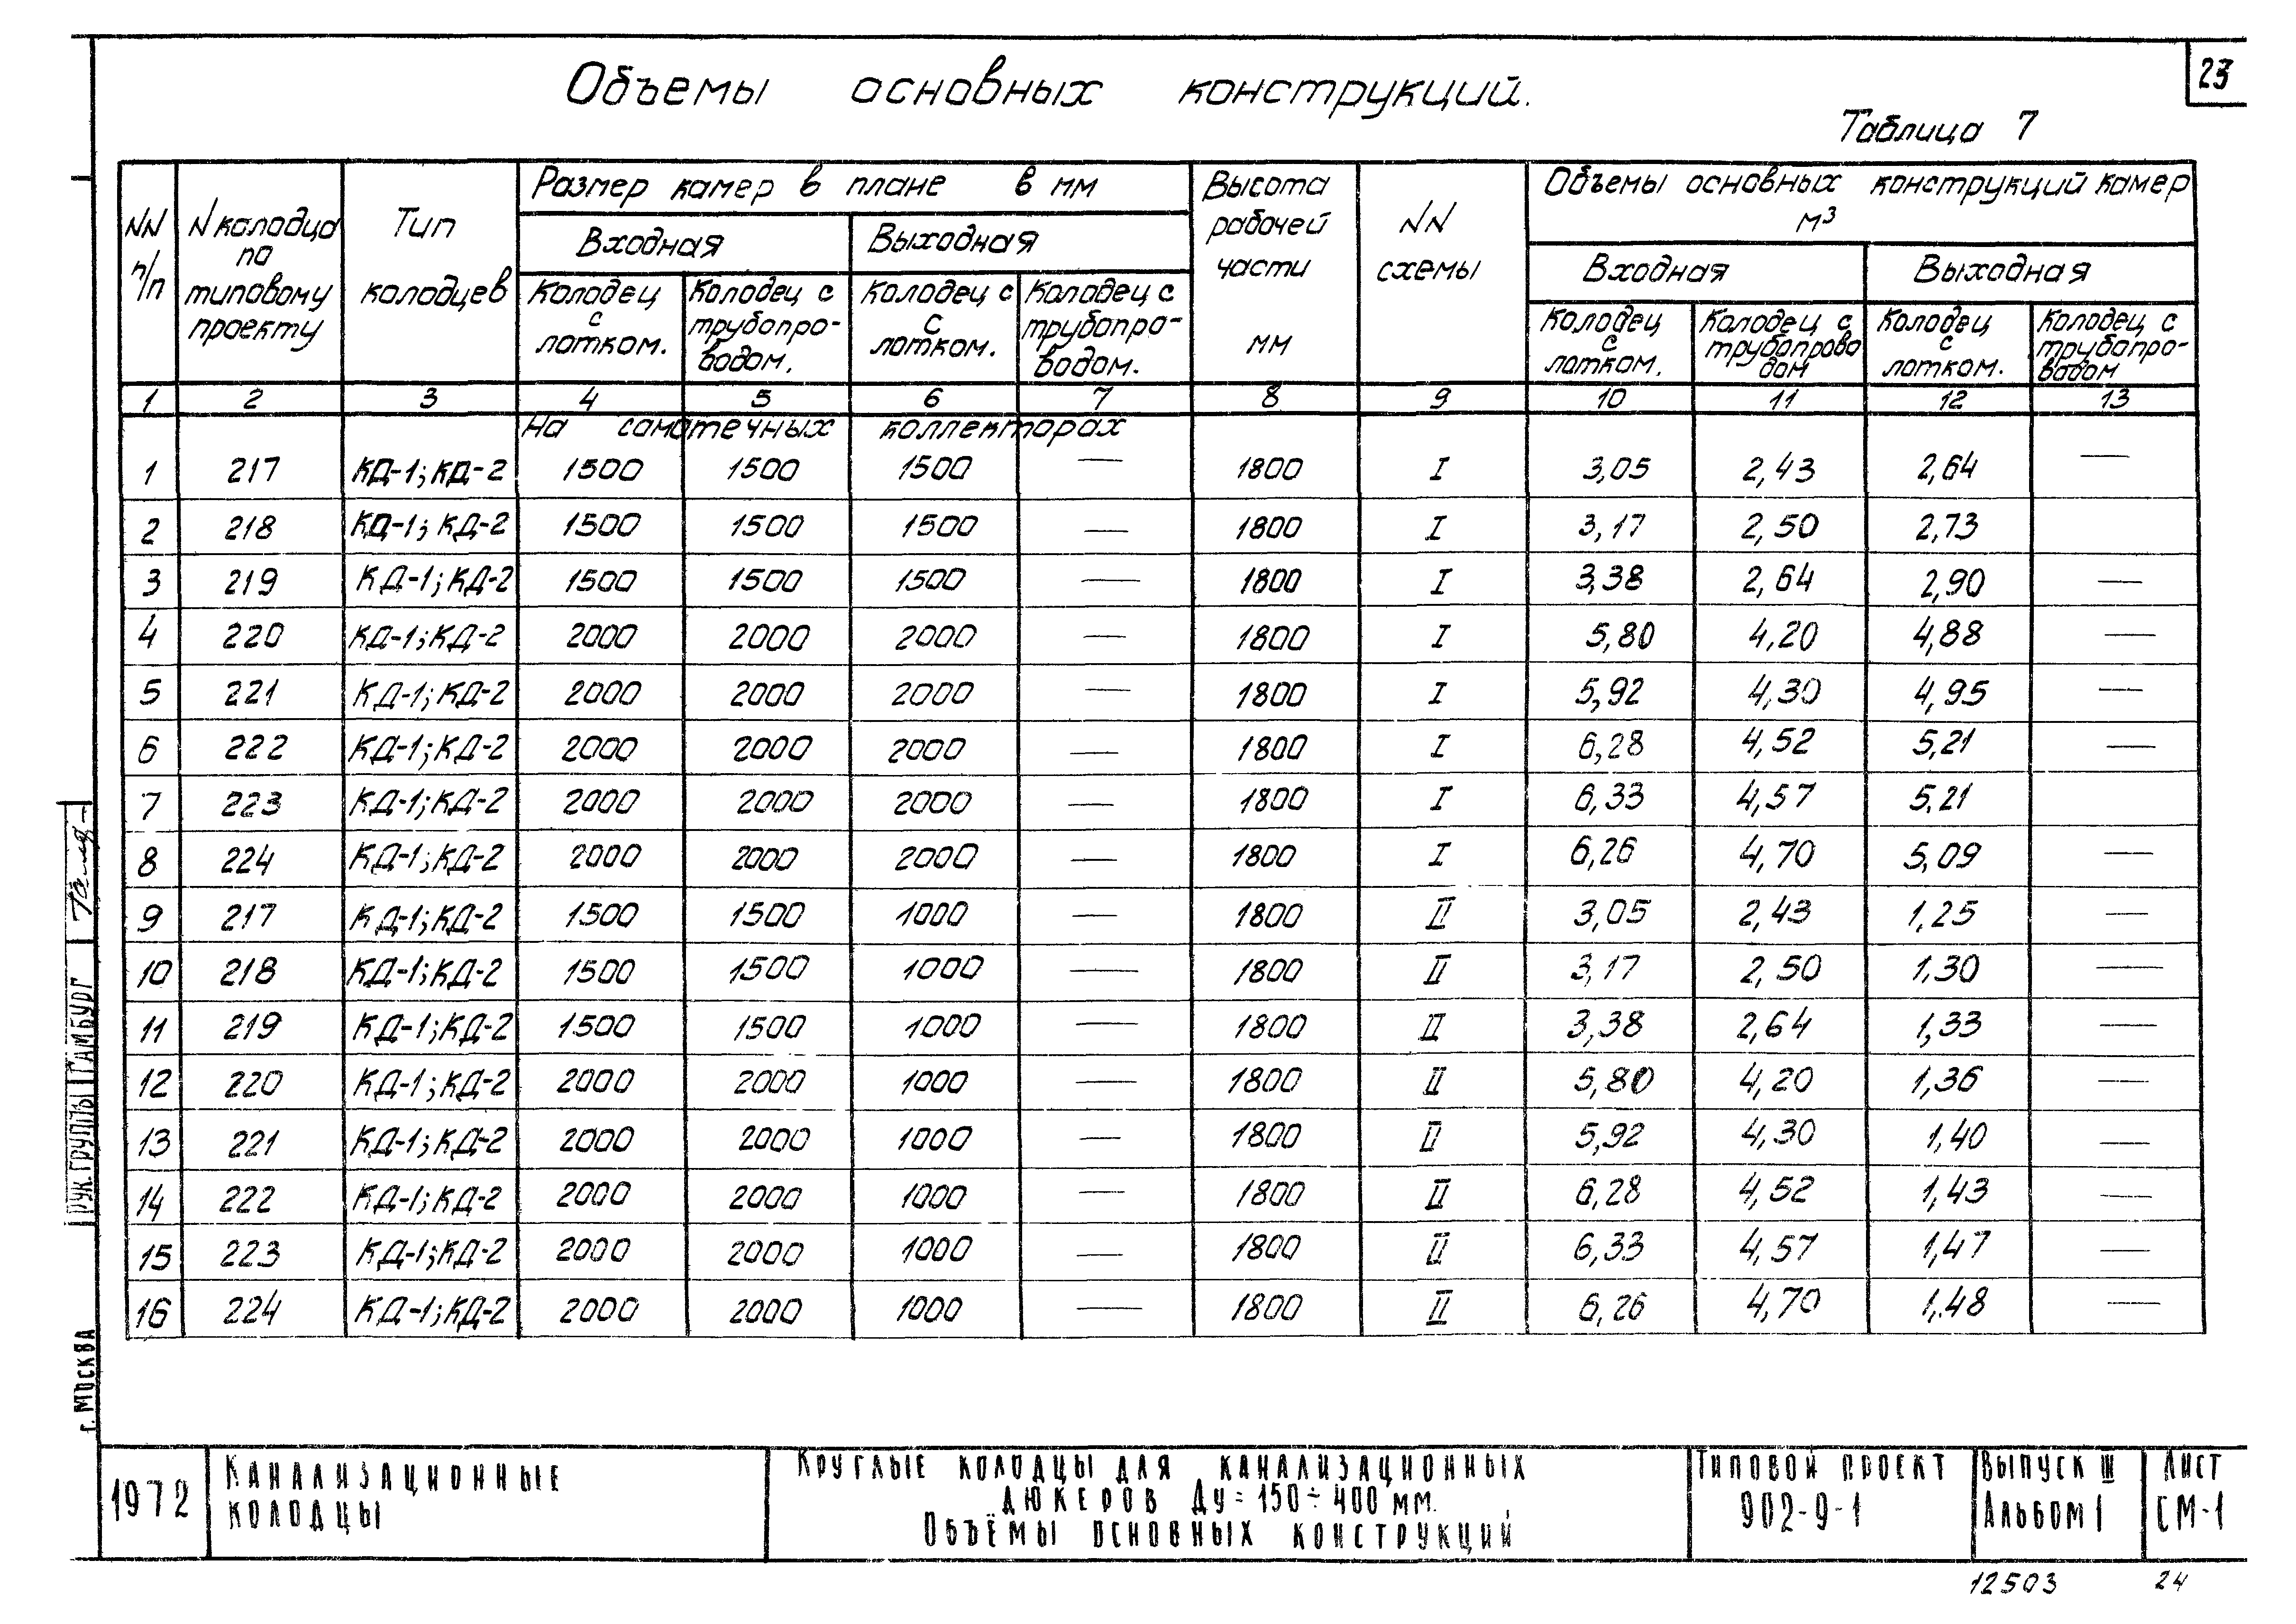 23
Объемы основных конструкций.
Таблица 7
NN п/п
N колодца по типовому проекту
Тип колодцев
Размер камер в плане в мм
Входная
Выходная
Колодец с лотком.
Колодец с трубопро-водом.
Колодец с лотком.
Колодец с трубопро-водом.
Высота рабочей части мм
NN схемы
Объемы основных конструкций камер м³
Входная
Выходная
Колодец с лотком.
Колодец с трубопрово дом
Колодец с лотком.
Колодец с трубопро-водом
1 2 3 4 5 6 7 8 9 10 11 12 13
На самотечных коллекторах
1 217 КД-1; КД-2 1500 1500 1500 — 1800 I 3,05 2,43 2,64 —
2 218 КД-1; КД-2 1500 1500 1500 — 1800 I 3,17 2,50 2,73
3 219 КД-1; КД-2 1500 1500 1500 — 1800 I 3,38 2,64 2,90 —
4 220 КД-1; КД-2 2000 2000 2000 — 1800 I 5,80 4,20 4,88 —
5 221 КД-1; КД-2 2000 2000 2000 — 1800 I 5,92 4,30 4,95 —
6 222 КД-1; КД-2 2000 2000 2000 — 1800 I 6,28 4,52 5,21 —
7 223 КД-1; КД-2 2000 2000 2000 — 1800 I 6,33 4,57 5,21
8 224 КД-1; КД-2 2000 2000 2000 — 1800 I 6,26 4,70 5,09 —
9 217 КД-1; КД-2 1500 1500 1000 — 1800 II 3,05 2,43 1,25 —
10 218 КД-1; КД-2 1500 1500 1000 — 1800 II 3,17 2,50 1,30 —
11 219 КД-1; КД-2 1500 1500 1000 — 1800 II 3,38 2,64 1,33 —
12 220 КД-1; КД-2 2000 2000 1000 — 1800 II 5,80 4,20 1,36 —
13 221 КД-1; КД-2 2000 2000 1000 — 1800 II 5,92 4,30 1,40 —
14 222 КД-1; КД-2 2000 2000 1000 — 1800 II 6,28 4,52 1,43 —
15 223 КД-1; КД-2 2000 2000 1000 — 1800 II 6,33 4,57 1,47 —
16 224 КД-1; КД-2 2000 2000 1000 — 1800 II 6,26 4,70 1,48 —
РУК. ГРУППЫ ГАМБУРГ
г. МОСКВА
1972
КАНАЛИЗАЦИОННЫЕ
КОЛОДЦЫ
КРУГЛЫЕ КОЛОДЦЫ ДЛЯ КАНАЛИЗАЦИОННЫХ
ДЮКЕРОВ ДУ=150÷400 ММ.
ОБЪЁМЫ ОСНОВНЫХ КОНСТРУКЦИЙ
ТИПОВОЙ ПРОЕКТ
902-9-1
ВЫПУСК III
АЛЬБОМ I
ЛИСТ
СМ-1
12503 24